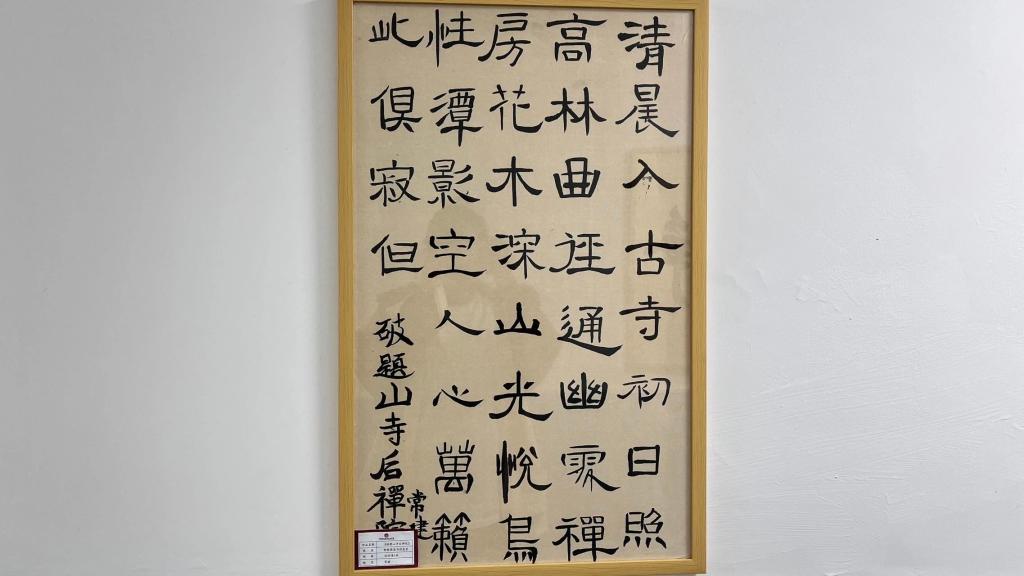 清晨入古寺初日照
高林曲徑通幽處禪
房花木深山光悅鳥
性潭影空人心萬籟
此俱寂但
破題山寺后禪院
常建